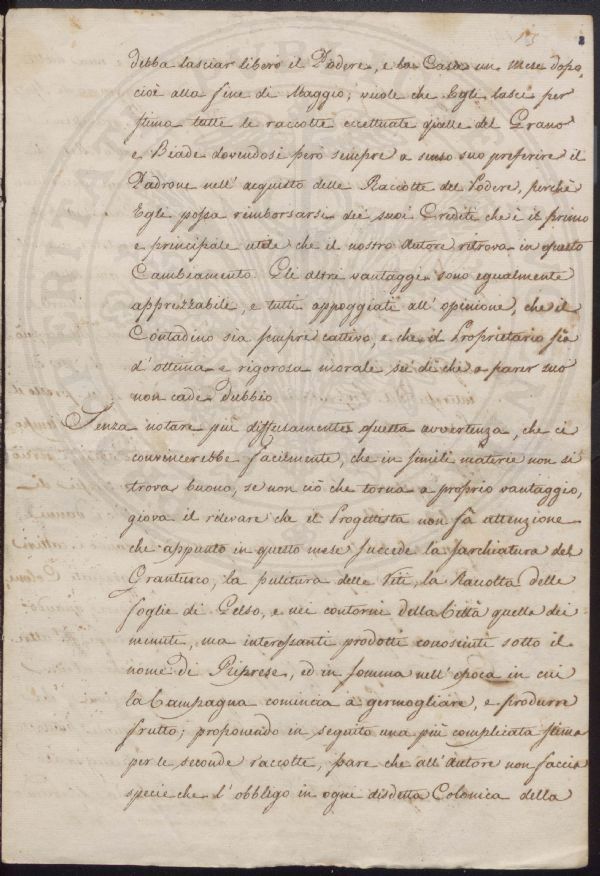 13
8
debba lasciar libero il Podere, e la Casa un mese dopo,
cioè alla fine di Maggio; vuole che Egli lasci per
stima tutte le raccolte eccettuate quelle del Grano
e Biade dovendosi però sempre a senso suo preferire il
Padrone nell' acquisto delle Raccolte del Podere, perchè
Egli possa rimborsarsi dei suoi Crediti che è il primo
e principale utile che il nostro Autore ritrova in questo
Cambiamento. Gli altri vantaggi sono egualmente
apprezzabile, e tutti appoggiati all' opinione, che il
Contadino sia sempre cattivo, e che il Proprietario sia
d' ottima e rigorosa morale su di che a parer suo
non cade dubbio
Senza notare più diffusamente questa avvertenza, che ci
convincerebbe facilmente, che in simili materie non si
trova buono, se non ciò che torna a proprio vantaggio,
giova il rilevare che il Progettista non fà attenzione
che appunto in questo mese succede la sarchiatura del
Granturco, la pulitura delle Viti, la Raccolta delle
foglie di Gelso, e nei contorni della Città quelle dei
minuti, ma interessanti prodotti conosciuti sotto il
nome di Riprese, ed in somma nell' epoca in cui
la Campagna comincia a germogliare, e produrre
frutto; proponendo in seguito una più complicata stima
per le seconde raccolte, pare che all' Autore non faccia
specie che l' obbligo in ogni disdetta Colonica della